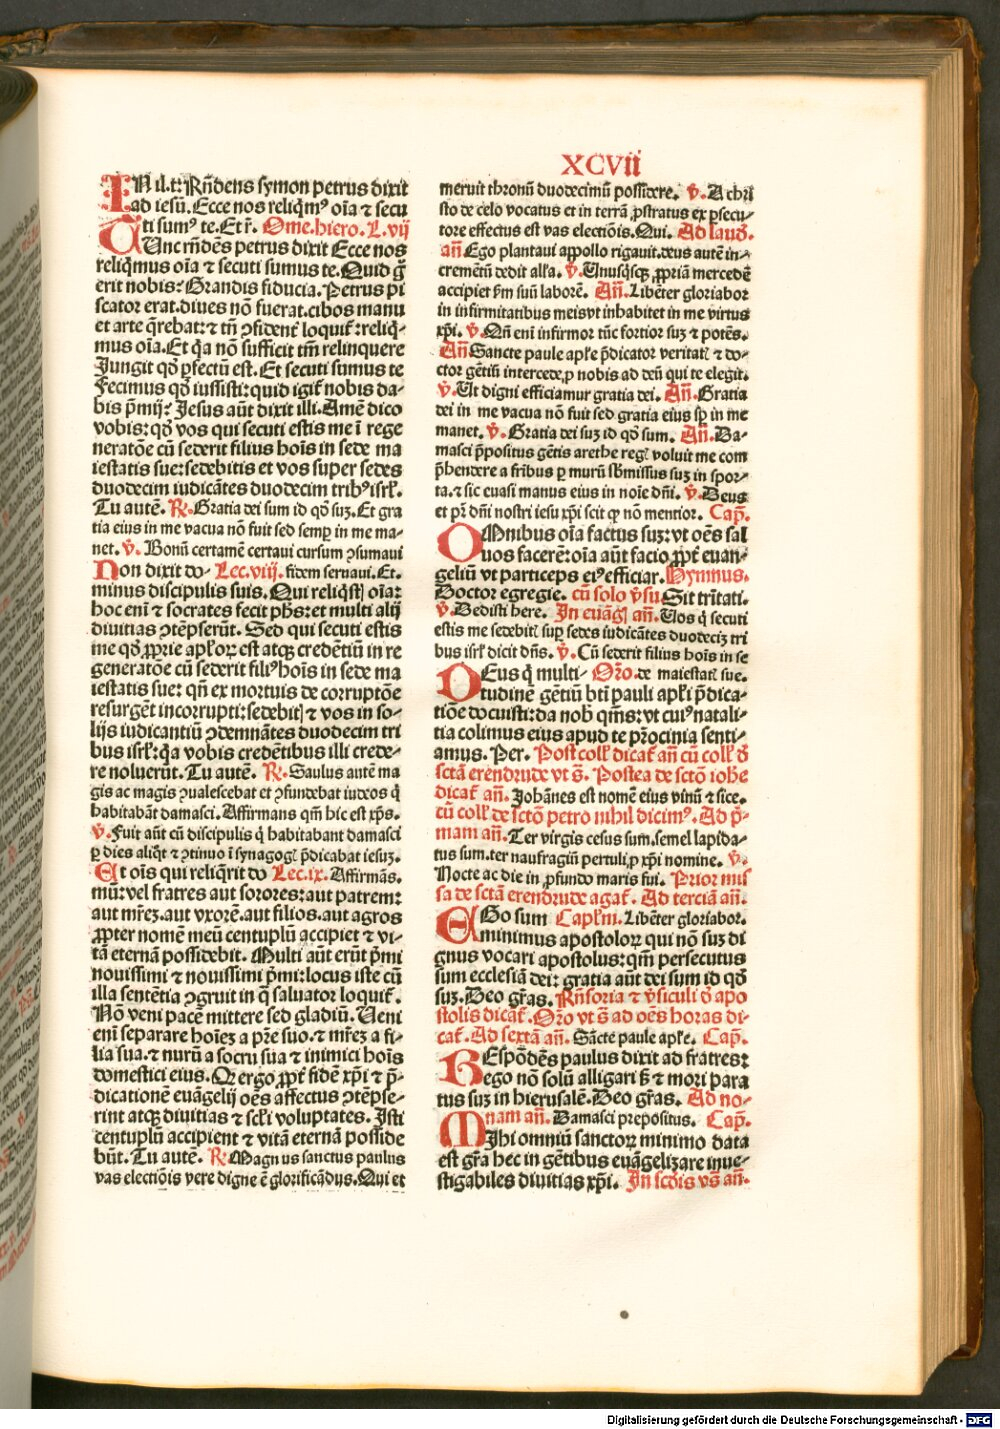 XCVII
IN il.t: Rñdens symon petrus dixit
ad iesū. Ecce nos reliq̄mꝰ oīa ⁊ secu
ti sumꝰ te. Et r̄. Ome.hiero. L.vij
TUnc rn̄dēs petrus dixit Ecce nos
reliq̄mus oīa ⁊ secuti sumus te. Quid g̊
erit nobis: Grandis fiducia. Petrus pi
scator erat. diues nō fuerat. cibos manu
et arte q̄rebat: ⁊ tn̄ ꝯfident̄ loquit̄: reliq̄-
mus oīa. Et q̄a nō sufficit tm̄ relinquere
Jungit qd̄ ꝑfectū est. Et secuti sumus te
Fecimus qd̄ iussisti: quid igit̄ nobis da-
bis p̄mij: Jesus aūt dixit illi. Amē dico
vobis: qd̄ vos qui secuti estis me ī rege
neratōe cū sederit filius hoīs in sede ma
iestatis sue: sedebitis et vos super sedes
duodecim iudicātes duodecim tribꝰ isrl̄.
Tu autē. R̄. Gratia dei sum id qd̄ suꝫ. Et gra
tia eius in me vacua nō fuit sed semꝑ in me ma-
net. v̄. Bonū certamē certaui cursum ꝯsumaui
Non dixit do- Lec.viij. fidem seruaui. Et.
minus discipulis suis. Qui reliq̄stꝭ oīa:
hoc enī ⁊ socrates fecit ph̄s: et multi alij
diuitias ꝯtēpserūt. Sed qui secuti estis
me qd̄ ꝓprie apl̄oꝝ est atqꝫ credētiū in re
generatōe cū sederit filiꝰ hoīs in sede ma
iestatis sue: qn̄ ex mortuis de corruptōe
resurgēt incorrupti: sedebitꝭ ⁊ vos in so-
lijs iudicantiū ꝯdemnātes duodecim tri
bus isrl̄: q̄a vobis credētibus illi crede-
re noluerūt. Tu autē. R̄. Saulus autē ma
gis ac magis ꝯualescebat et ꝯfundebat iudeos q̄
habitabāt damasci. Affirmans qm̄ hic est xp̄s.
v̄. Fuit aūt cū discipulis q̄ habitabant damasci
ꝑ dies aliq̄t ⁊ ꝯtinuo ī synagogꝭ p̄dicabat iesuꝫ.
Et oīs qui reliq̄rit do Lec.ix. Affirmās.
mū: vel fratres aut sorores: aut patrem:
aut mr̄eꝫ. aut vxorē. aut filios. aut agros
ꝓpter nomē meū centuplū accipiet ⁊ vi-
tā eternā possidebit. Multi aūt erūt p̄mi
nouissimi ⁊ nouissimi p̄mi: locus iste cū
illa sentētia ꝯgruit in q̄ saluator loquit̄.
Nō veni pacē mittere sed gladiū. Ueni
enī separare hoīeꝫ a pr̄e suo. ⁊ mr̄eꝫ a fi-
lia sua. ⁊ nurū a socru sua ⁊ inimici hoīs
domestici eius. Qꝛ ergo ꝓpt̄ fidē xp̄i ⁊ p̄-
dicationē euāgelij oēs affectus ꝯtēpse-
rint atqꝫ diuitias ⁊ scl̄i voluptates. Isti
centuplū accipient ⁊ vitā eternā posside
būt. Tu autē. R̄. Magnus sanctus paulus
vas electiōis vere digne ē glorificādus. Qui et
meruit thronū duodecimū possidere. v̄. A chri
sto de celo vocatus et in terrā ꝓstratus ex ꝑsecu-
tore effectus est vas electiōis. Qui. Ad laud̄.
añ Ego plantaui appollo rigauit. deus autē in-
crementū dedit all̄a. v̄. Unusq̄sqꝫ ꝓpriā mercedē
accipiet ẜm suū laborē. Añ. Libēter gloriabor
in infirmitatibus meis vt inhabitet in me virtus
xp̄i. v̄. Qn̄ enī infirmor tūc fortior suꝫ ⁊ potēs.
Añ Sancte paule apl̄e p̄dicator veritatꝭ ⁊ do-
ctor gētiū intercede ꝓ nobis ad deū qui te elegit.
v̄. Ut digni efficiamur gratia dei. Añ. Gratia
dei in me vacua nō fuit sed gratia eius sꝑ in me
manet. v̄. Gratia dei suꝫ id qd̄ sum. Añ. Da-
masci p̄positus gētis arethe regꝭ voluit me com
p̄hendere a fr̄ibus ꝑ murū sb̄missus suꝫ in spor-
ta. ⁊ sic euasi manus eius in noīe dn̄i. v̄. Deus
et pr̄ dn̄i nostri iesu xp̄i scit qꝛ nō mentior. Cap̄.
OMnibus oīa factus suꝫ: vt oēs sal
uos facerē: oīa aūt facio ꝓpt̄ euan-
geliū vt particeps eiꝰ efficiar. Hymnus.
Doctor egregie. cū solo v̄su Sit trītati.
v̄. Dedisti here. In euāgꝭ añ. Uos q̄ secuti
estis me sedebitꝭ suꝑ sedes iudicātes duodeciꝫ tri
bus isrl̄ dicit dn̄s. v̄. Cū sederit filius hoīs in se
DEus q̄ multi- Or̄o. de maiestatꝭ sue.
tudinē gētiū btī pauli apl̄i p̄dica-
tiōe docuisti: da nob̄ q̄ms: vt cuiꝰ natali-
tia colimus eius apud te pr̄ocinia senti-
amus. Per. Post coll̄ dicat̄ añ cū coll̄ d̄
sctā erendrude vt s̄. Postea de sctō ioh̄e
dicat̄ añ. Johānes est nomē eius vinū ⁊ sice.
cū coll̄ de sctō petro nihil dicimꝰ. Ad p̄-
mam añ. Ter virgis cesus sum. semel lapida-
tus sum. ter naufragiū pertuli ꝓ xp̄i nomine. v̄.
Nocte ac die in ꝓfundo maris fui. Prior mis
sa de sctā erendrude agat̄. Ad terciā añ.
EGo sum Capl̄m. Libēter gloriabor.
minimus apostoloꝝ qui nō suꝫ di
gnus vocari apostolus: qm̄ persecutus
sum ecclesiā dei: gratia aūt dei sum id qd̄
suꝫ. Deo gr̄as. Rn̄soria ⁊ v̄siculi d̄ apo
stolis dicat̄. Or̄o vt s̄ ad oēs horas di-
cat̄. Ad sextā añ. Sācte paule apl̄e. Cap̄.
REspōdēs paulus dixit ad fratres:
ego nō solū alligari s̄ ⁊ mori para
tus suꝫ in hierusalē. Deo gr̄as. Ad no-
nam añ. Damasci prepositus. Cap̄.
MIhi omniū sanctoꝝ minimo data
est gr̄a hec in gētibus euāgelizare inue-
stigabiles diuitias xp̄i. In scd̄is vs̄ añ.
Digitalisierung gefördert durch die Deutsche Forschungsgemeinschaft - DFG